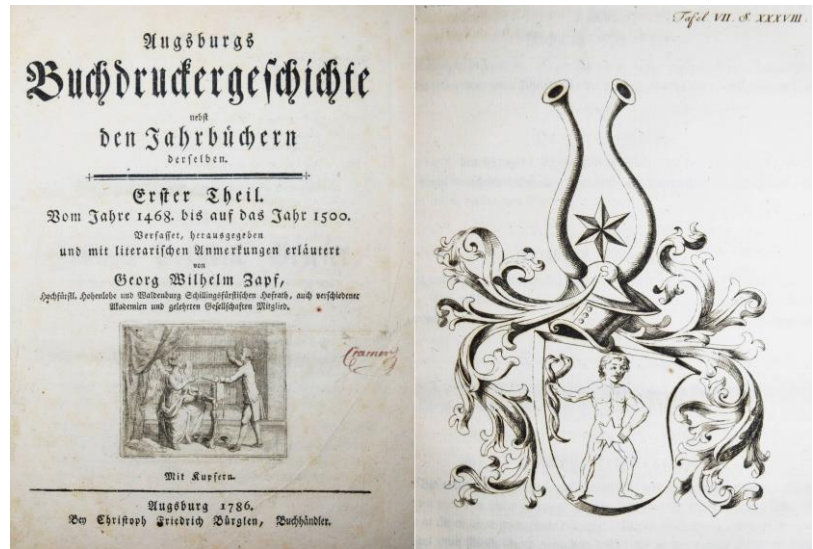 Augsburgs
Buchdruckergeschichte
nebst
den Jahrbüchern
derselben.
Erster Theil.
Vom Jahre 1468. bis auf das Jahr 1500.
Verfasset, herausgegeben
und mit literarischen Anmerkungen erläutert
von
Georg Wilhelm Zapf,
Hochfürstl. Hohenlohe und Waldenburg Schillingsfürstischen Hofrath, auch verschiedener
Akademien und gelehrten Gesellschaften Mitglied.
Cramer
Mit Kupfern.
Augsburg 1786.
Bey Christoph Friedrich Bürglen, Buchhändler.
Tafel VII. S. XXXVIII.